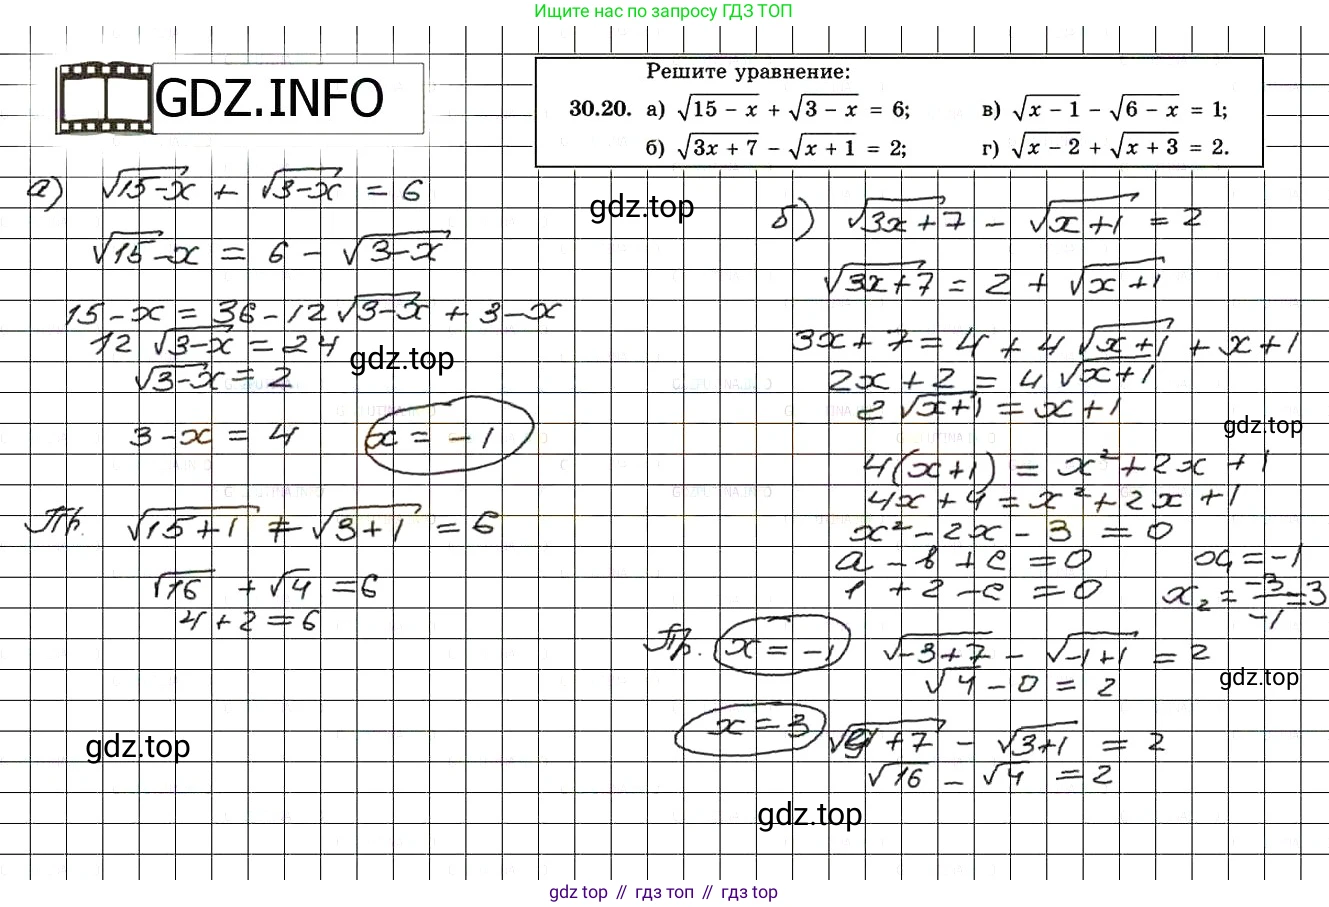 Ищите нас по запросу ГДЗ ТОП
GDZ.INFO
Решите уравнение:
30.20. а) √(15 − x) + √(3 − x) = 6; в) √(x − 1) − √(6 − x) = 1;
б) √(3x + 7) − √(x + 1) = 2; г) √(x − 2) + √(x + 3) = 2.
а) √(15−x) + √(3−x) = 6
√15−x = 6 − √(3−x)
15−x = 36−12√(3−x) + 3−x
12 √(3−x) = 24
√(3−x) = 2
3−x = 4 x = −1
Пр. √(15+1) ≠ √(3+1) = 6
√16 + √4 = 6
4+2=6
gdz.top
gdz.top
gdz.top
б) √(3x+7) − √(x+1) = 2
gdz.top
√(3x+7) = 2 + √(x+1)
3x+7 = 4 + 4 √(x+1) + x+1
2x+2 = 4 √(x+1)
2 √(x+1) = x+1
gdz.top
4(x+1) = x²+2x+1
4x+4 = x²+2x+1
x²−2x−3 = 0
a−b+c = 0 x₁ = −1
1+2−c = 0 x₂ = −3/−1 = 3
Пр. x = −1 √(−3+7) − √(−1+1) = 2
√4 − 0 = 2
gdz.top
x = 3 √(9+7) − √(3+1) = 2
√16 − √4 = 2
gdz.top
gdz top // гдз топ // gdz top